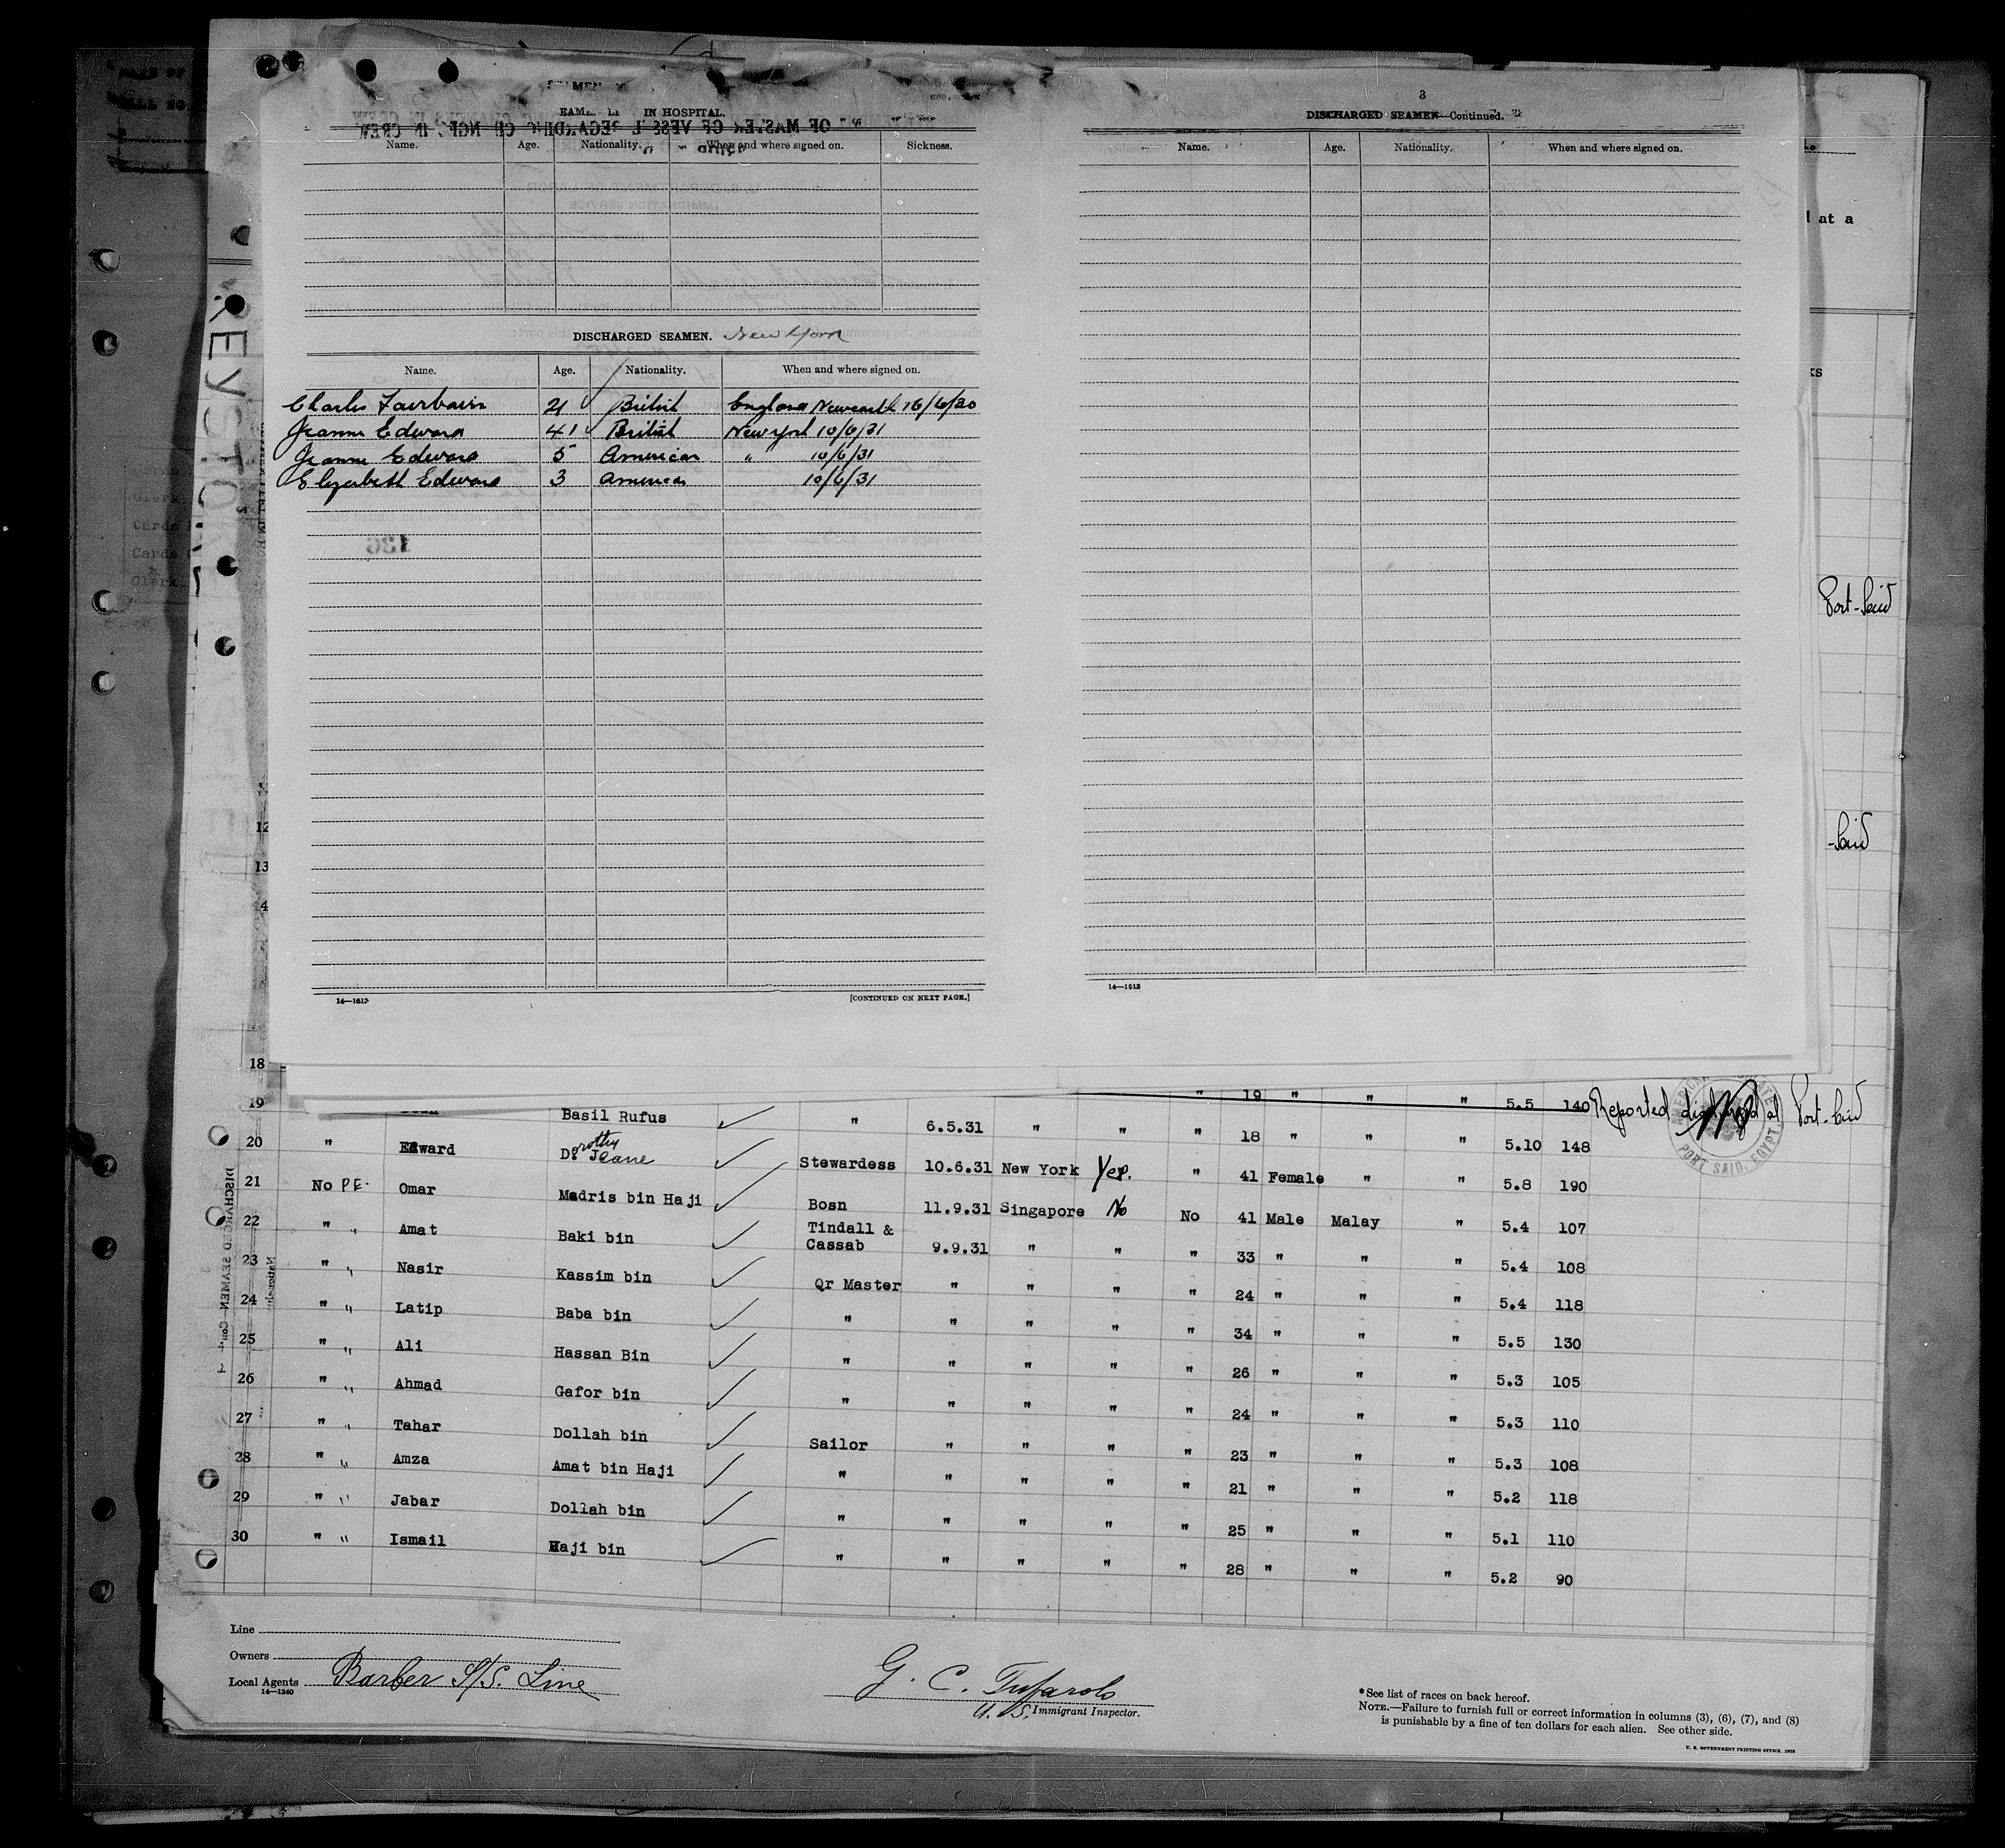 3
EAMEN LE IN HOSPITAL.
Name. Age. Nationality. When and where signed on. Sickness.
DISCHARGED SEAMEN—Continued.
Name. Age. Nationality. When and where signed on.
at a
DISCHARGED SEAMEN. New York
Name. Age. Nationality. When and where signed on.
Charles Fairbairn 21 British England Newcastle 16/6/30
Jeanne Edward 41 British New York 10/6/31
Jeanne Edward 5 American " 10/6/31
Elizabeth Edward 3 American 10/6/31
Port-Said
-Said
12
13
14
14—1613 [CONTINUED ON NEXT PAGE.]
14—1613
18
" 19 " " " 5.5 140 Reported discharged at Port-Said
19 Basil Rufus " 6.5.31 " " " 18 " " " 5.10 148
20 " Edward Dorothy Jeane Stewardess 10.6.31 New York Yes. " 41 Female " " 5.8 190
21 No PE. Omar Madris bin Haji Bosn 11.9.31 Singapore No No 41 Male Malay " 5.4 107
22 " " Amat Baki bin Tindall & Cassab 9.9.31 " " " 33 " " " 5.4 108
23 " " Nasir Kassim bin Qr Master " " " " 24 " " " 5.4 118
24 " " Latip Baba bin " " " " " 34 " " " 5.5 130
25 " " Ali Hassan Bin " " " " " 26 " " " 5.3 105
26 " " Ahmad Gafor bin " " " " " 24 " " " 5.3 110
27 " " Tahar Dollah bin Sailor " " " " 23 " " " 5.3 108
28 " " Amza Amat bin Haji " " " " " 21 " " " 5.2 118
29 " " Jabar Dollah bin " " " " " 25 " " " 5.1 110
30 " " Ismail Haji bin " " " " " 28 " " " 5.2 90
PORT SAID, EGYPT.
Line
Owners
Local Agents Barber S/S. Line
14—1240
G. C. Tufarolo
U. S. Immigrant Inspector.
*See list of races on back hereof.
NOTE.—Failure to furnish full or correct information in columns (3), (6), (7), and (8)
is punishable by a fine of ten dollars for each alien. See other side.